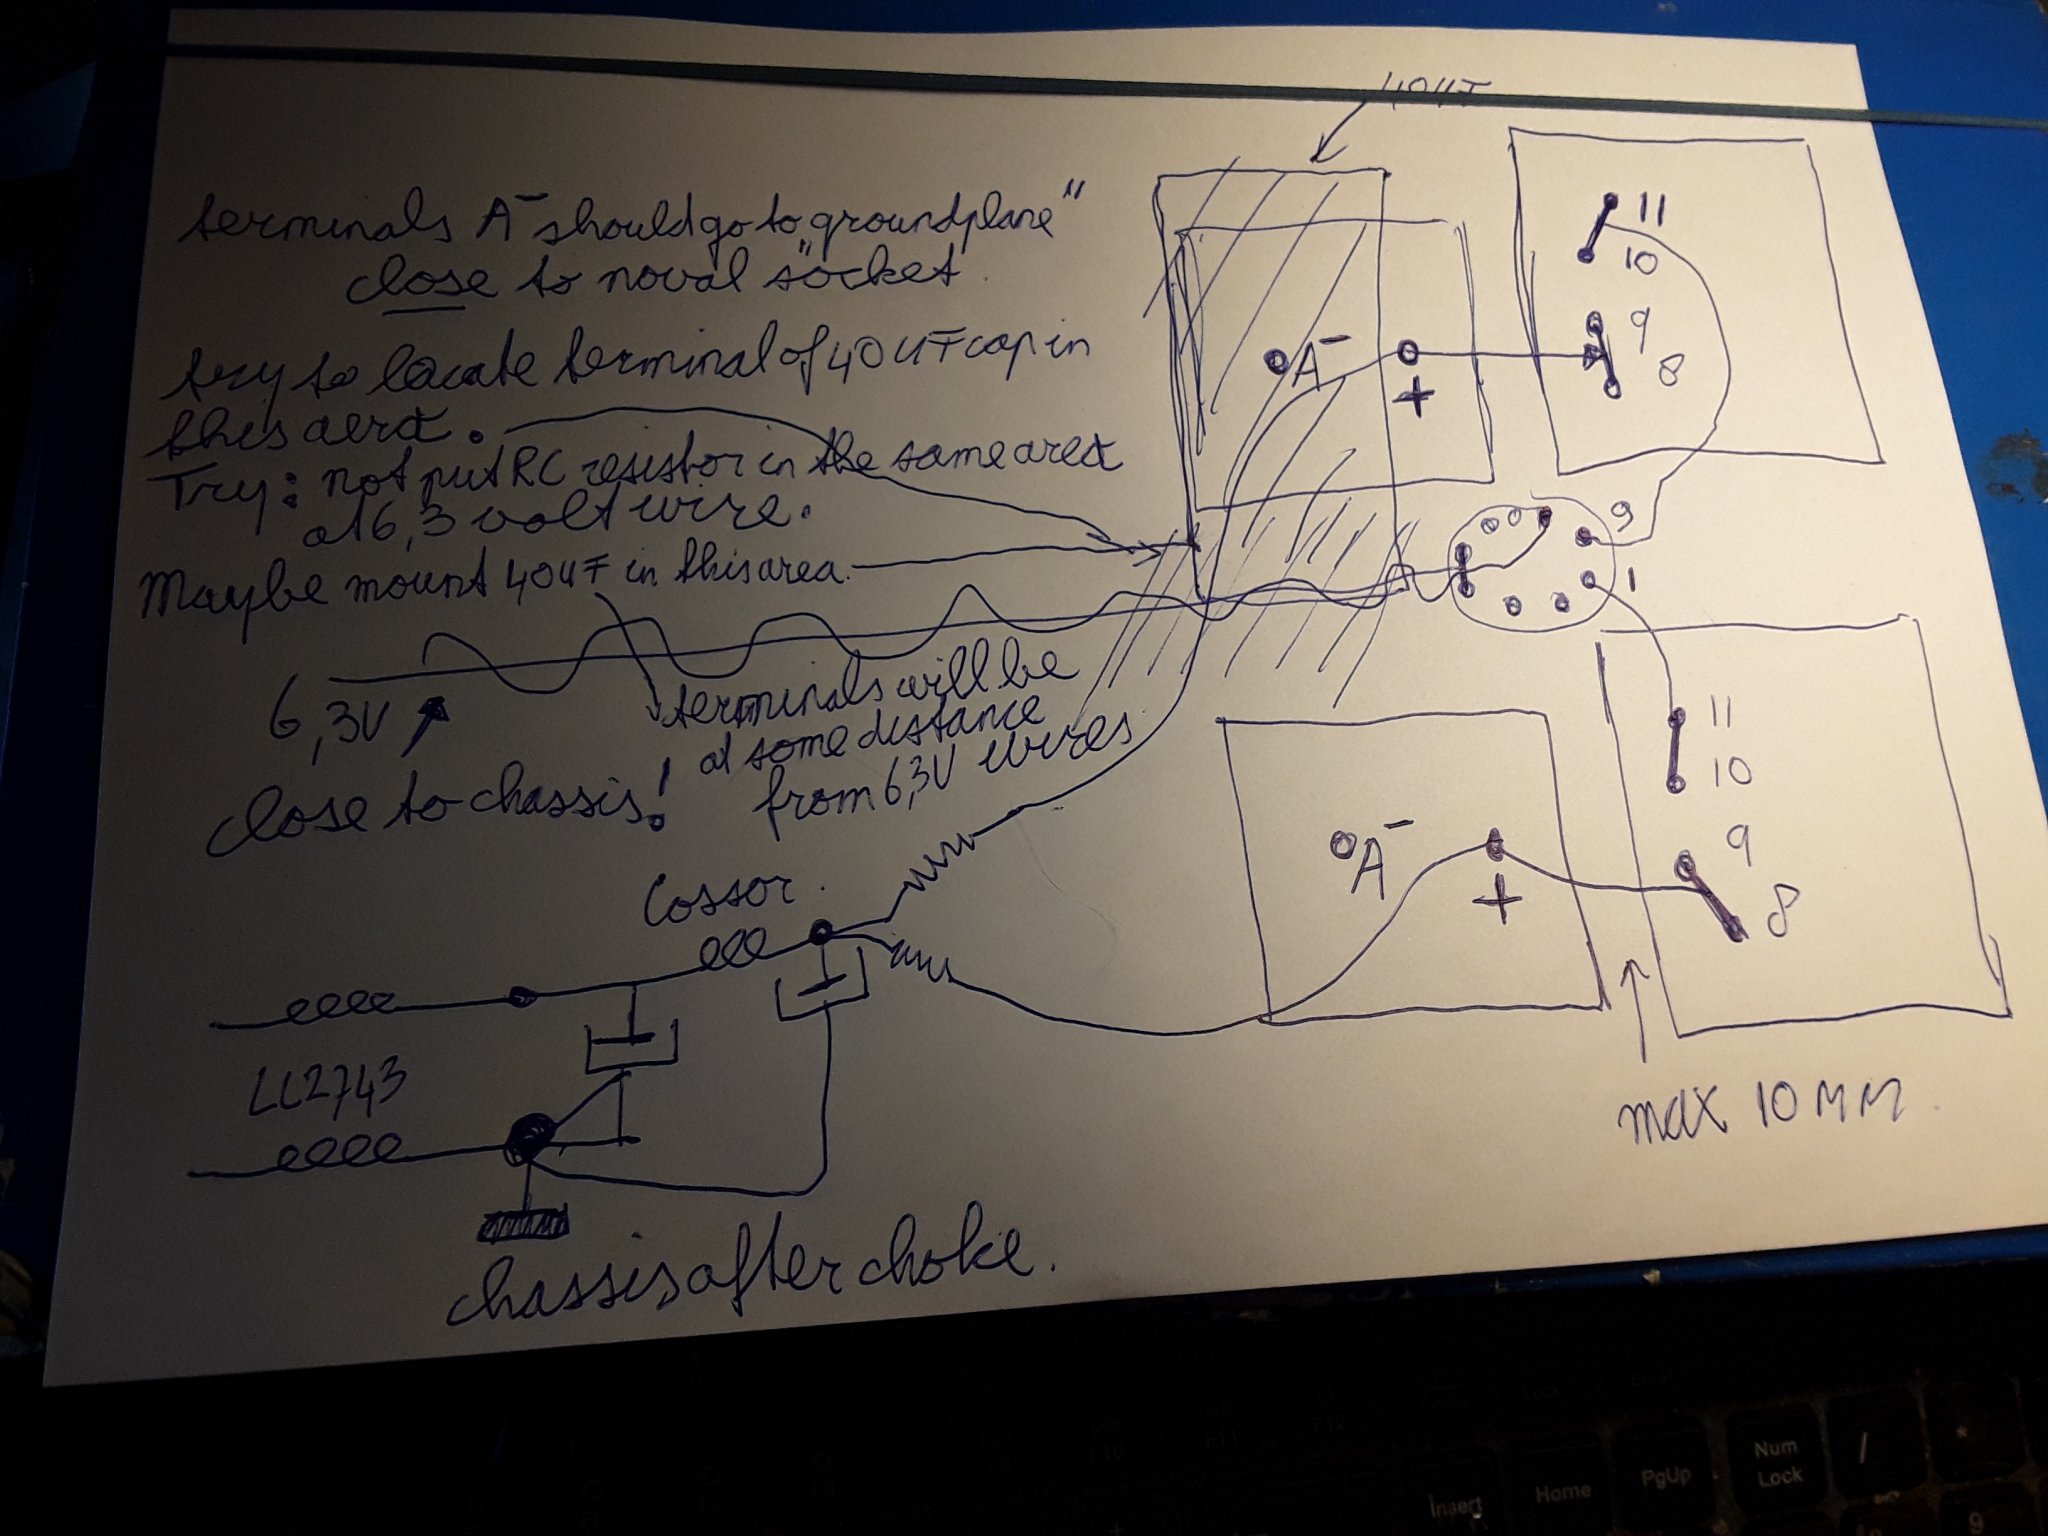 40UF
terminals A⁻ should go to "groundplane"
close to noval "socket
try to locate terminal of 40UF cap in
this aera.
Try: not put RC resistor in the same area
at 6,3 volt wire.
Maybe mount 40UF in this area.
6,3V
close to chassis!
terminals will be
at some distance
from 6,3V wires
Cossor.
LL2743
chassis after choke.
A⁻
+
11
10
9
8
9
1
11
10
9
8
A⁻
+
max 10 MM
Insert
Home
PgUp
Num
Lock
/
*
9